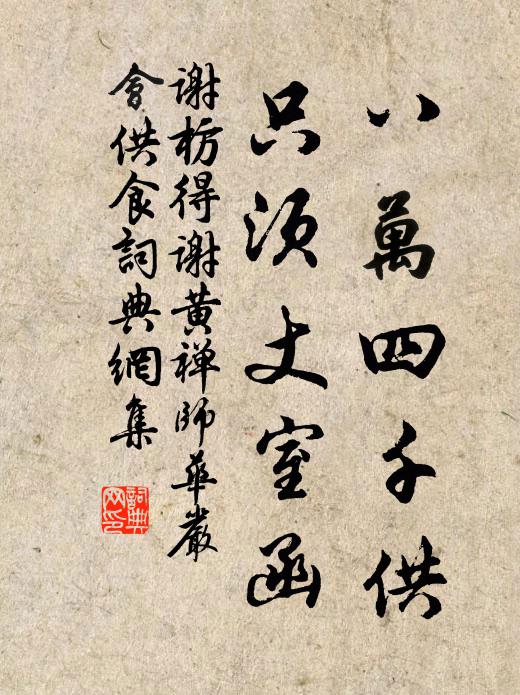 八萬四千供
只須丈室函
谢枋得谢黄禅師華嚴
會供食詞典網集
詞典
网印